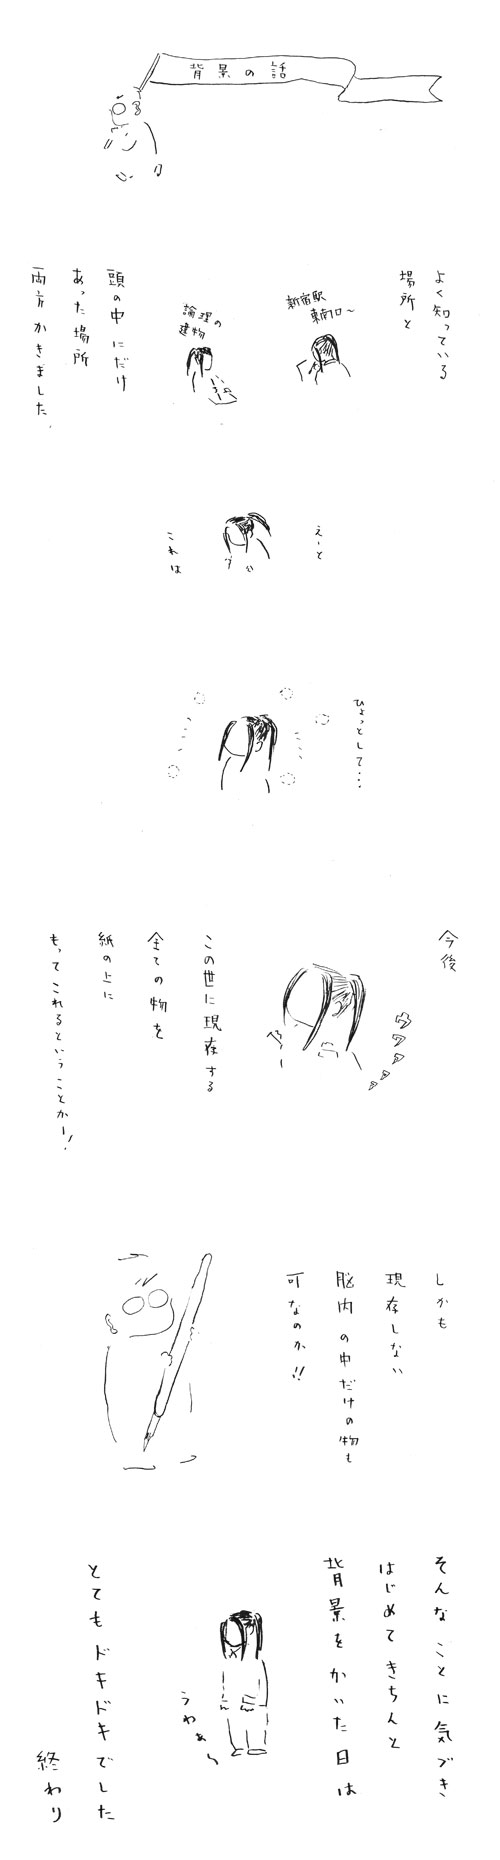 背景の話
よく知っている
場所と
新宿駅
東南口〜
論理の
建物
頭の中にだけ
あった場所
両方かきました.
えーと
これは
ひょっとして...
今後
ウワァァァァ
この世に現存する
全ての物を
紙の上に
もってこれるということかー!
しかも
現存しない
脳内の中だけの物も
可なのか!!
そんなことに気づき
はじめてきちんと
背景をかいた日は
うわぁ〜
とてもドキドキでした
終わり